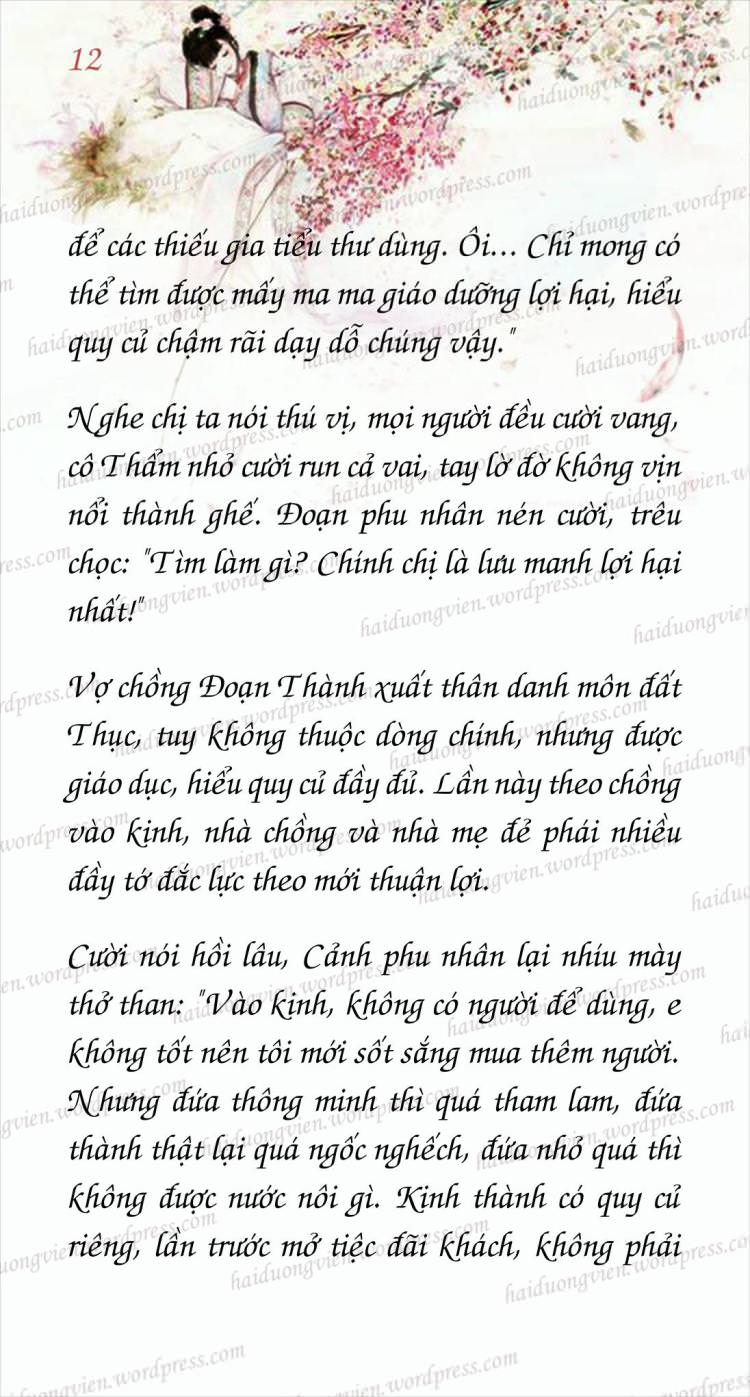 12
để các thiếu gia tiểu thư dùng. Ôi... Chỉ mong có
thể tìm được mấy ma ma giáo dưỡng lợi hại, hiểu
quy củ chậm rãi dạy dỗ chúng vậy."
Nghe chị ta nói thú vị, mọi người đều cười vang,
cô Thẩm nhỏ cười run cả vai, tay lờ đờ không vịn
nổi thành ghế. Đoạn phu nhân nén cười, trêu
chọc: "Tìm làm gì? Chính chị là lưu manh lợi hại
nhất!"
Vợ chồng Đoạn Thành xuất thân danh môn đất
Thục, tuy không thuộc dòng chính, nhưng được
giáo dục, hiểu quy củ đầy đủ. Lần này theo chồng
vào kinh, nhà chồng và nhà mẹ đẻ phái nhiều
đầy tớ đắc lực theo mới thuận lợi.
Cười nói hồi lâu, Cảnh phu nhân lại nhíu mày
thở than: "Vào kinh, không có người để dùng, e
không tốt nên tôi mới sốt sắng mua thêm người.
Nhưng đứa thông minh thì quá tham lam, đứa
thành thật lại quá ngốc nghếch, đứa nhỏ quá thì
không được nước nôi gì. Kinh thành có quy củ
riêng, lần trước mở tiệc đãi khách, không phải
haiduongvien.wordpress.com